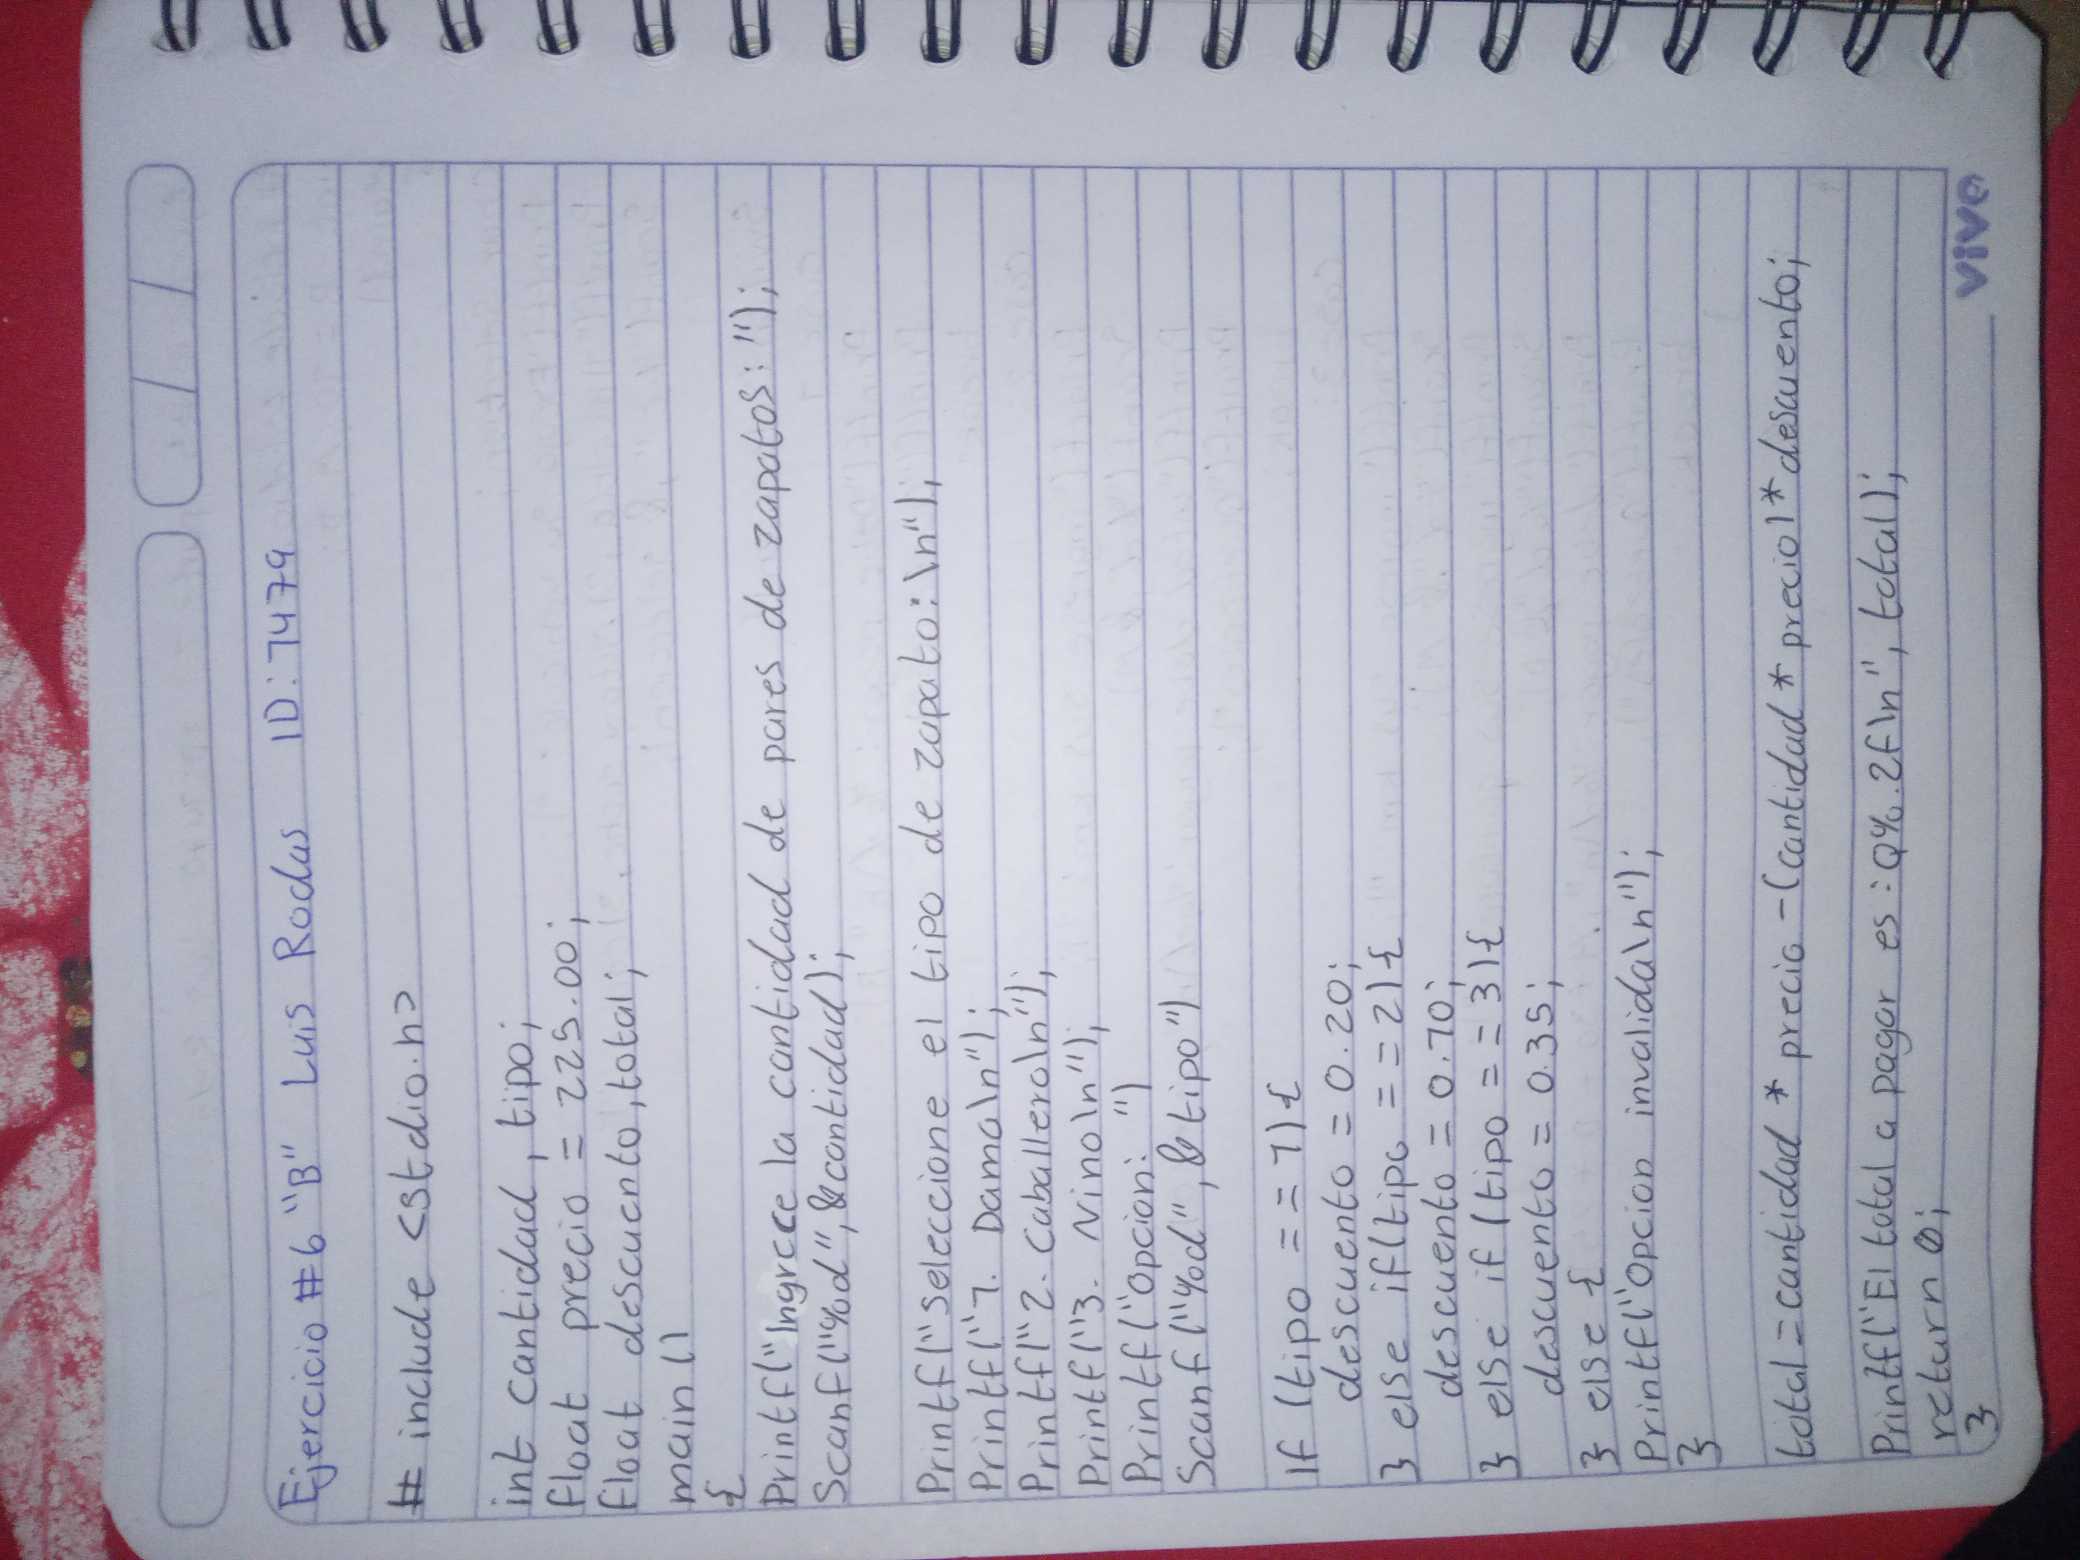 Ejercicio #6 "B" Luis Rodas ID: 7479
# include <stdio.h>
int cantidad, tipo;
float precio = 225.00;
float descuento, total;
main ()
{
Printf("Ingrece la cantidad de pares de zapatos: ");
Scanf("%d", &cantidad);
Printf("seleccione el tipo de zapato: \n");
Printf("1. Dama\n");
Printf("2. Caballero\n");
Printf("3. Nino\n");
Printf("Opcion: ")
Scanf("%d", &tipo")
If (tipo == 1){
descuento = 0.20;
} else if(tipo == 2){
descuento = 0.10;
} else if (tipo == 3){
descuento = 0.35;
} else {
Printf("Opcion invalida\n");
}
total = cantidad * precio - (cantidad * precio) * descuento;
Printf("El total a pagar es: Q%.2f\n", total);
return 0;
}
vive